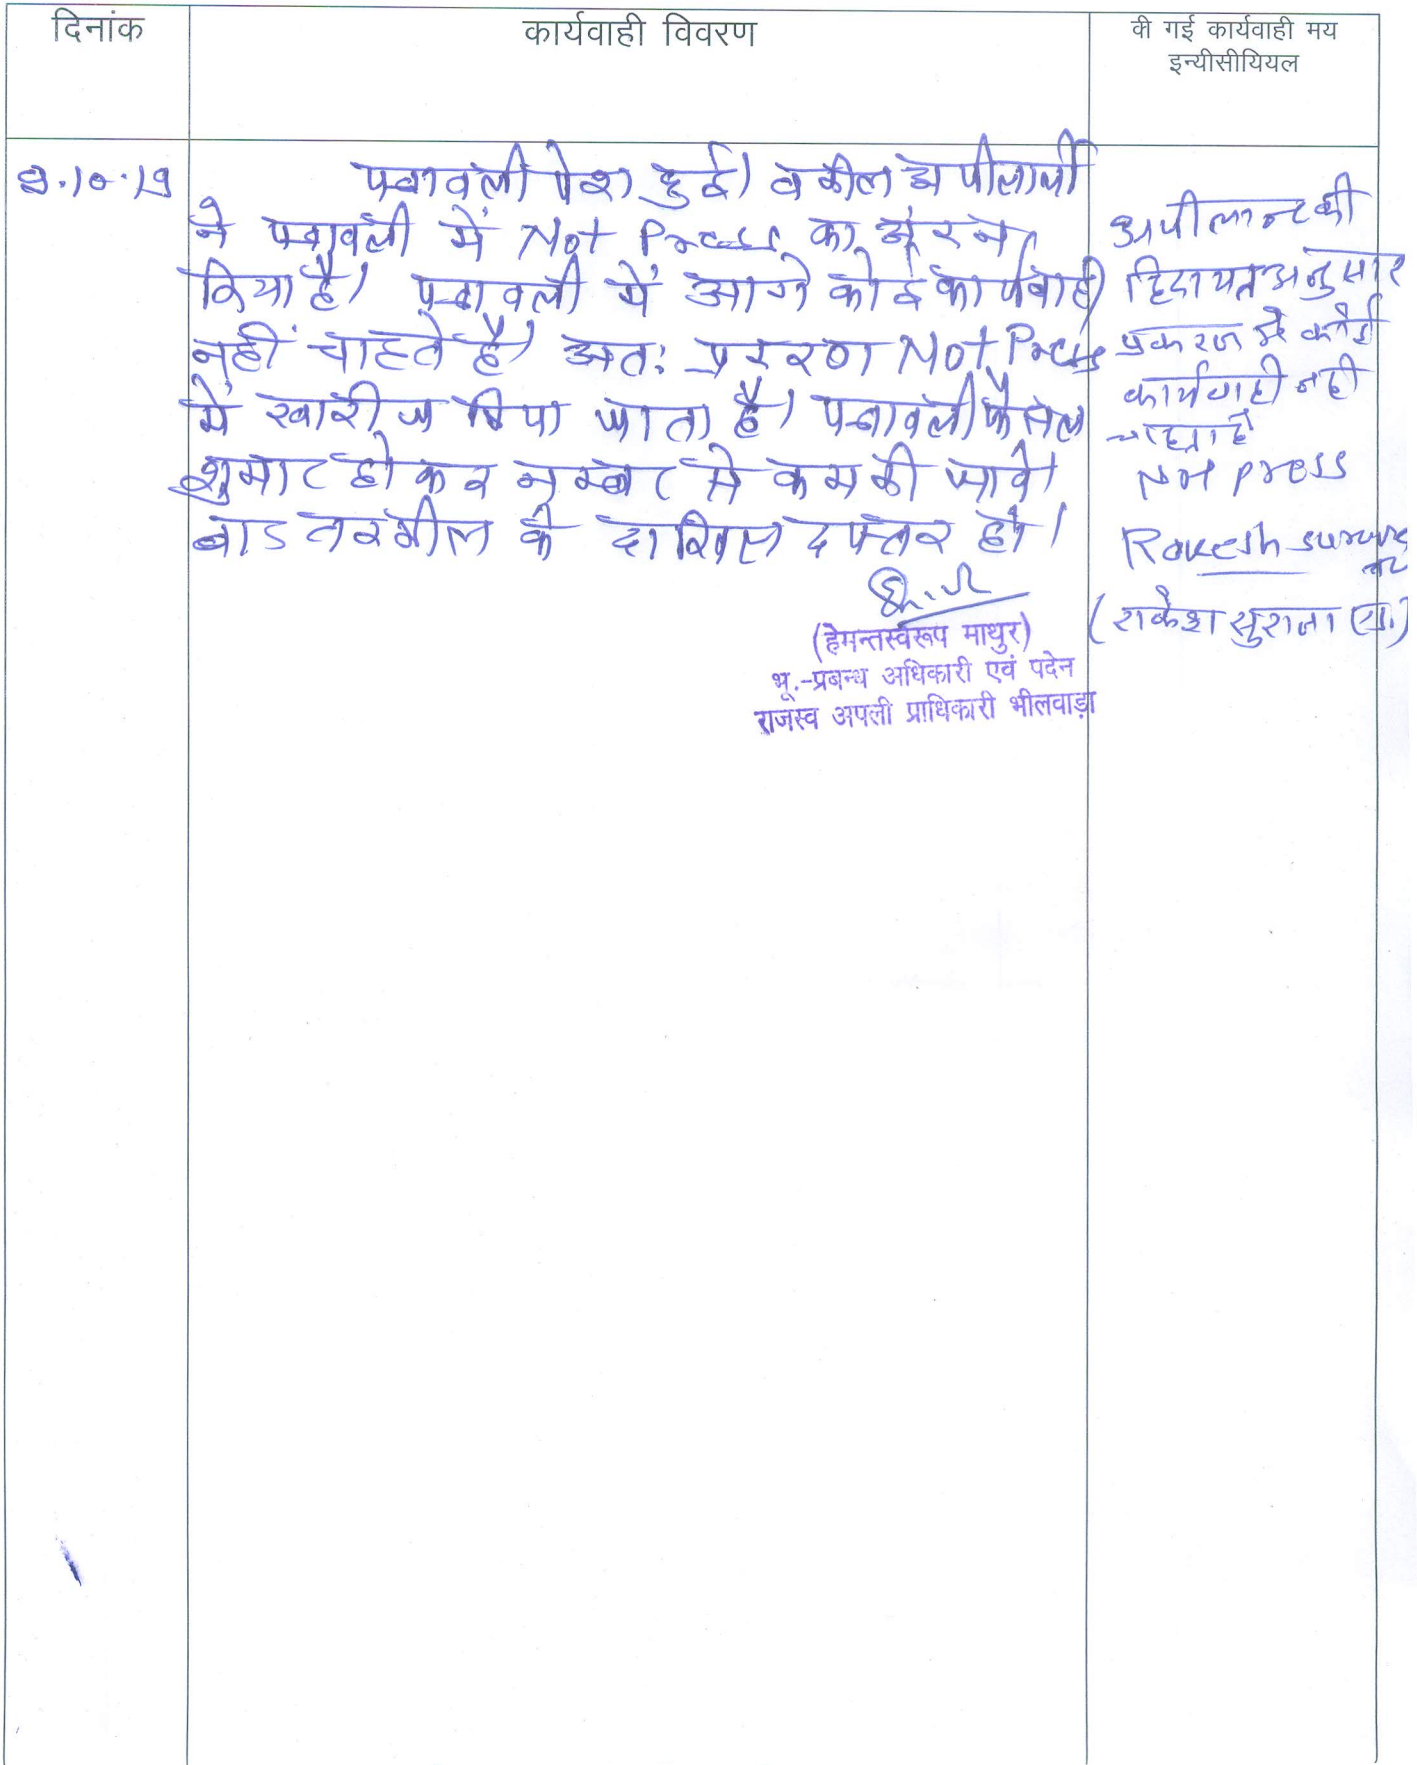 दिनांक
कार्यवाही विवरण
की गई कार्यवाही मय
इन्यीसीयियल
9.10.19
पत्रावली पेश हुई। वकील अपीलार्थी
ने पत्रावली में Not Press का
किया है। पत्रावली में आगे कोई कार्यवाही
नहीं चाहते है। अतः प्रकरण Not Press
में खारीज किया जाता है। पत्रावली फैसल
शुमार होकर नम्बर से कम की जावे।
बाद तकमील के दाखिल दफ्तर हो।
(हेमन्तस्वरूप माथुर)
भू.-प्रबन्ध अधिकारी एवं पदेन
राजस्व अपली प्राधिकारी भीलवाड़ा
अपीलान्ट की
हिदायत अनुसार
प्रकरण मे कोई
कार्यवाही नही
चाहता है
Not press
Rakesh surana
(राकेश सुराना